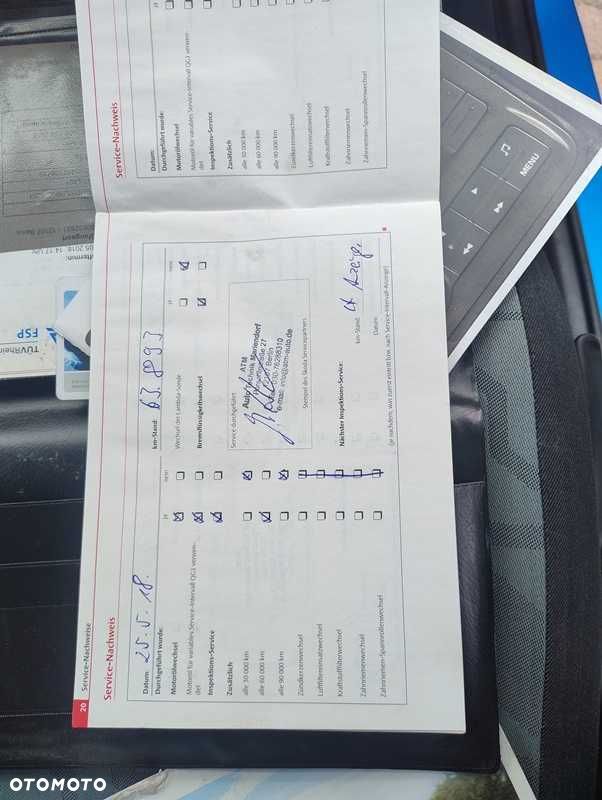 20 Service-Nachweise
Service-Nachweis
Datum: 25.5.18.
km-Stand: 63.8993
Durchgeführt wurde:
ja
nein
ja
nein
Motorölwechsel
Wechsel der Lambda-Sonde
Motoröl für variables Service-Intervall QG1 verwendet
Bremsflüssigkeitswechsel
Inspektions-Service
Zusätzlich
Service durchgeführt:
alle 30 000 km
alle 60 000 km
alle 90 000 km
Zündkerzenwechsel
Luftfiltereinsatzwechsel
Kraftstofffilterwechsel
Zahnriemenwechsel
Zahnriemen-Spannrollenwechsel
ATM
Auto Technik Mariendorf
Berlin
e-mail: info@atm-auto.de
Stempel des Škoda Servicepartners
Nächster Inspektions-Service:
km-Stand:
Datum:
(je nachdem, was zuerst eintritt bzw. nach Service-Intervall-Anzeige)
Service-Nachweis
Datum:
Durchgeführt wurde:
ja
Motorölwechsel
Motoröl für variables Service-Intervall QG1 verwendet
Inspektions-Service
Zusätzlich
alle 30 000 km
alle 60 000 km
alle 90 000 km
Zündkerzenwechsel
Luftfiltereinsatzwechsel
Kraftstofffilterwechsel
Zahnriemenwechsel
Zahnriemen-Spannrollenwechsel
MENU
TÜVRhein
FSP
OTOMOTO